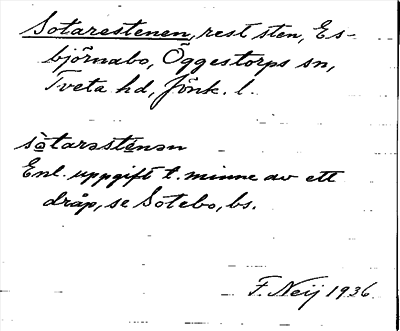 Sotarestenen, rest sten, Es-
björnabo, Öggestorps sn,
Tveta hd, Jönk. l.
sòtarəsténən
Enl. uppgift t. minne av ett
dråp, se Sotebo, bs.
F. Neij 1936.